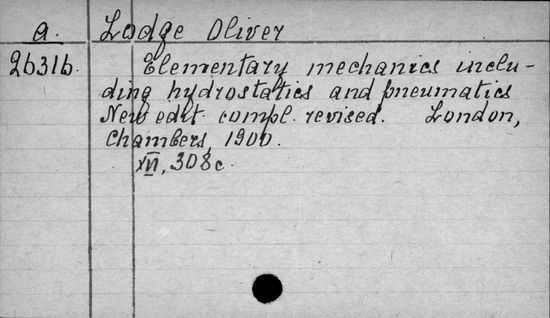 a. Lodge Oliver
26316. Elementary mechanics inclu-
ding hydrostatics and pneumatics
New edit. compl. revised. London,
Chambers, 1900.
308c.